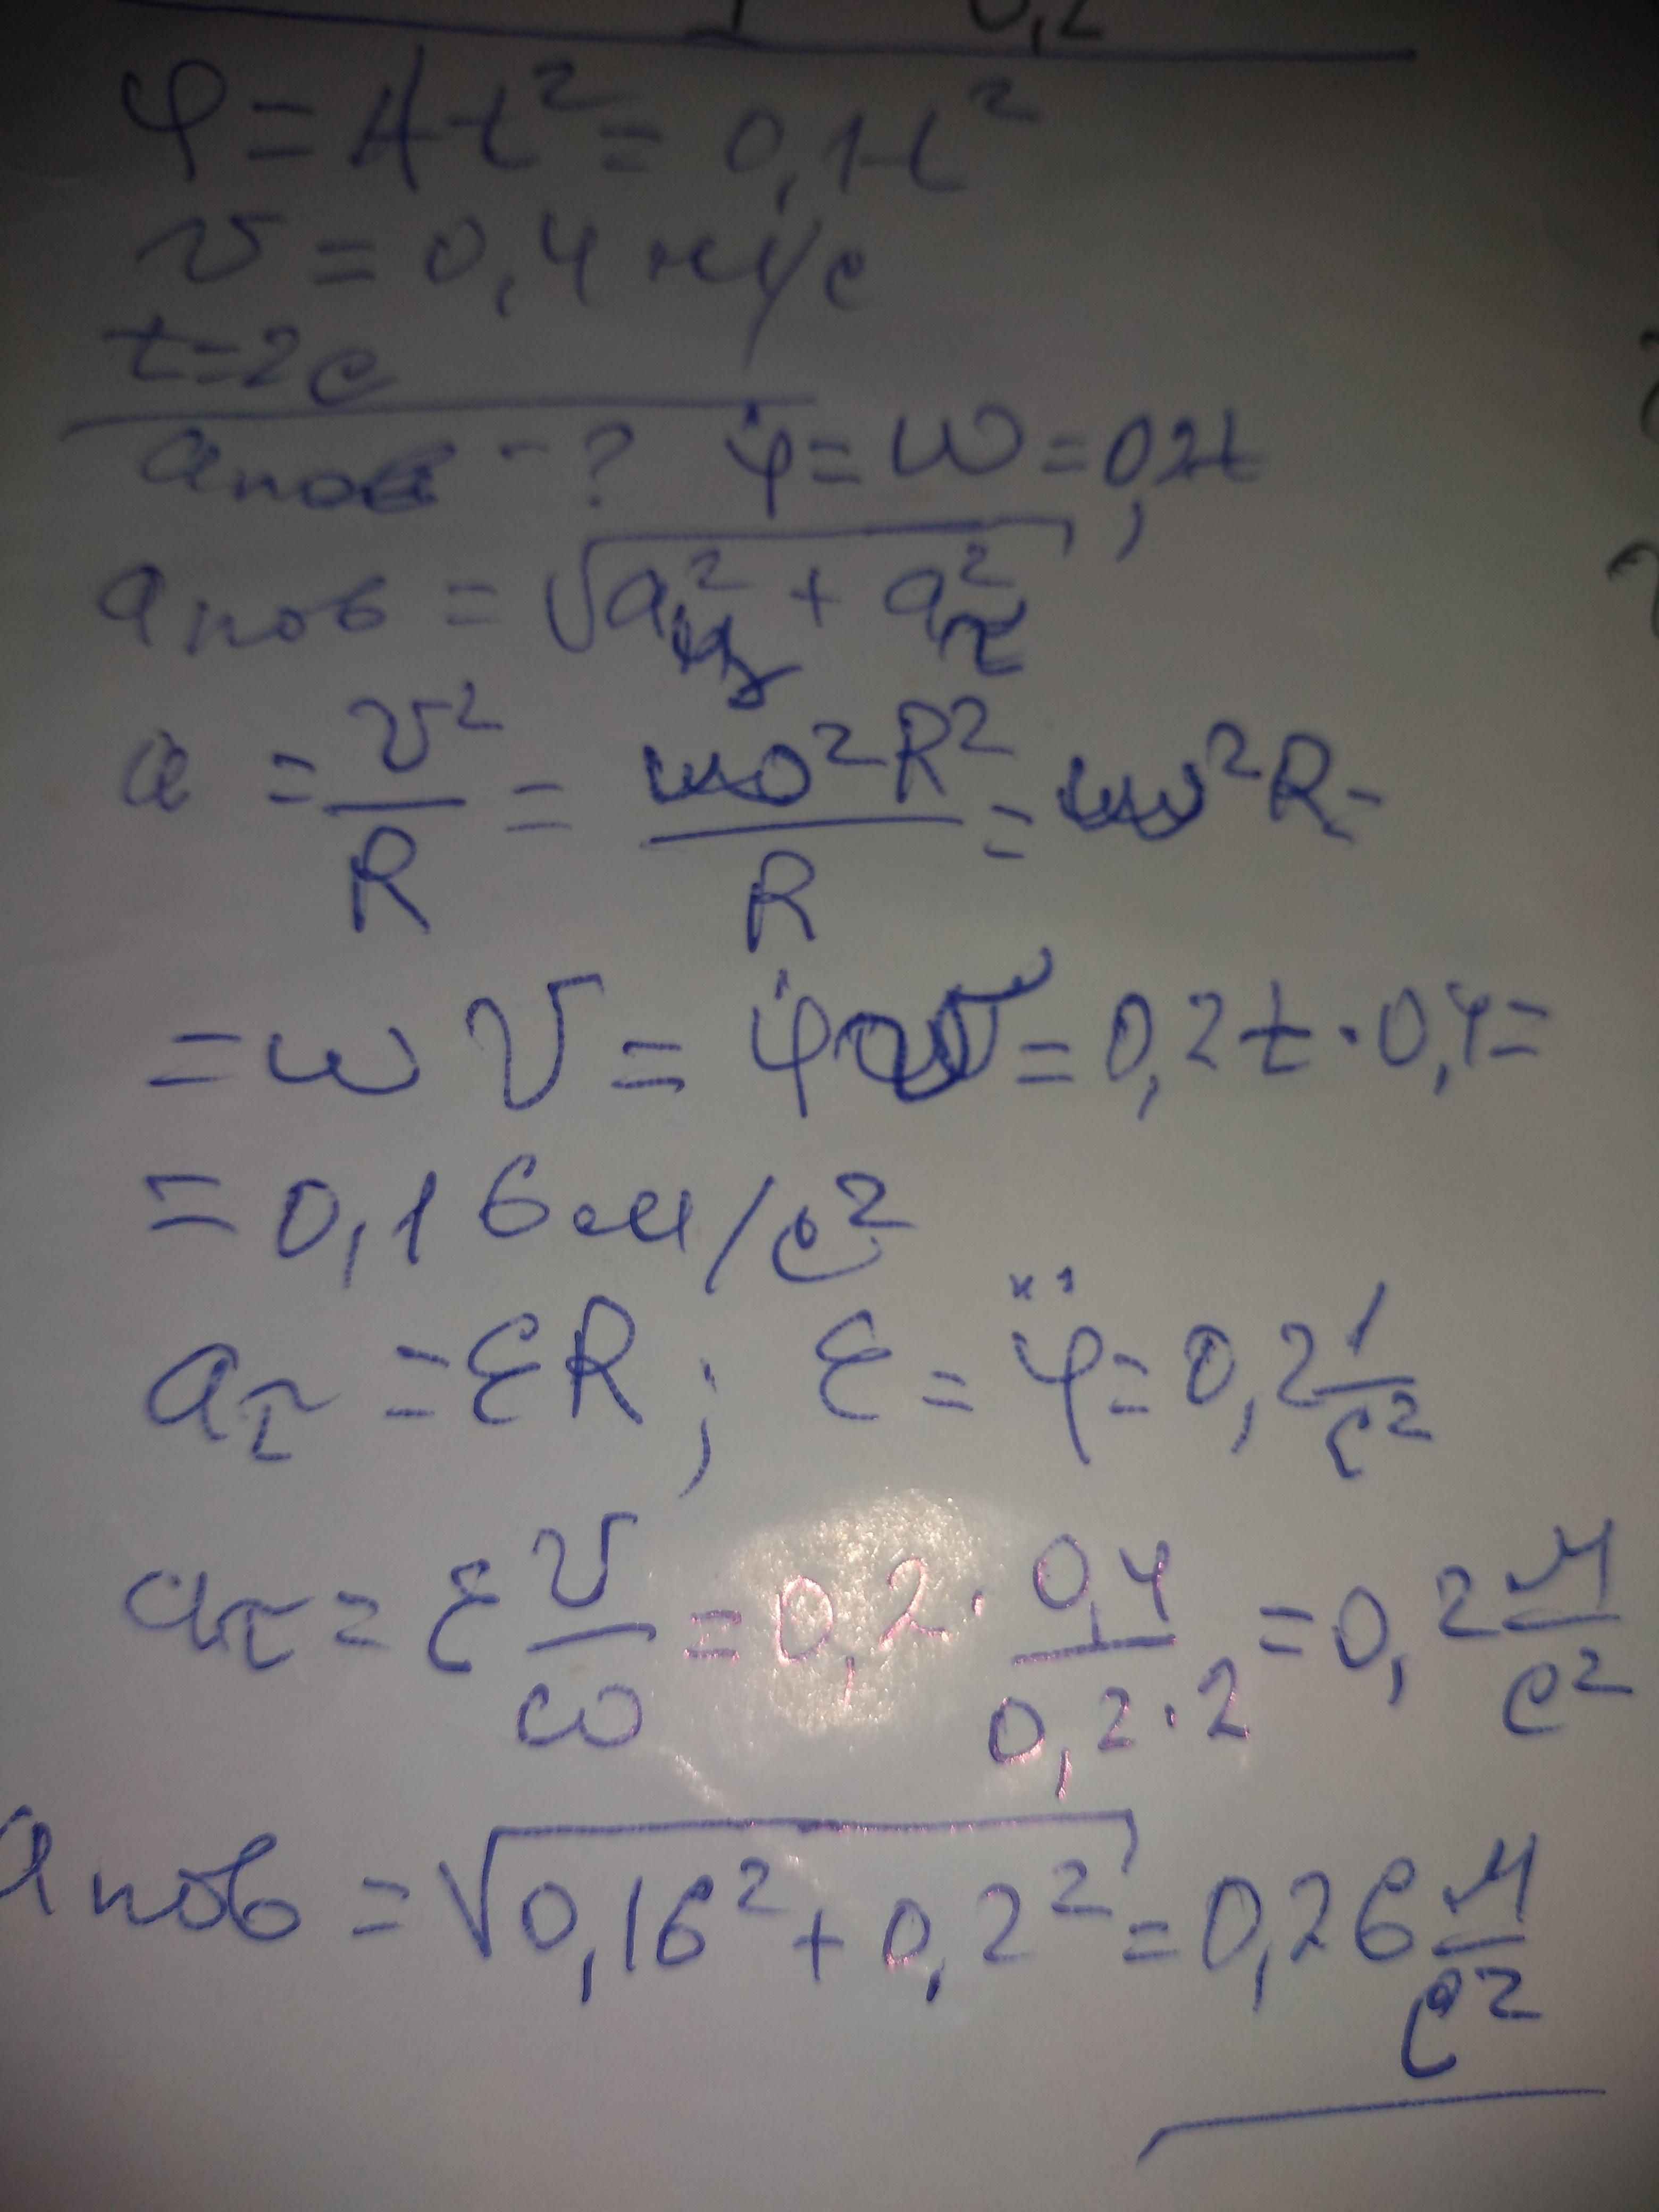 0,2
φ = At² = 0,1t²
v = 0,4 м/с
t=2c
aпов - ? φ̇ = ω = 0,2t
aпов = √(aд² + aτ²)
a = v²/R = ω²R²/R = ω²R =
= ω v = φ̇ v = 0,2t · 0,4 =
= 0,16 м/с²
aτ = εR ; ε = φ̈ = 0,2 1/с²
aτ = ε v/ω = 0,2 · 0,4/0,2·2 = 0,2 м/с²
aпов = √(0,16² + 0,2²) = 0,26 м/с²